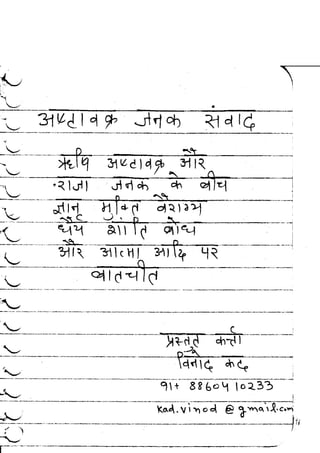 अष्टावक्र जनक संवाद
ऋषि अष्टावक्र और
राजा जनक के बीच
ज्ञान मुक्ति वैराग्य
धैर्य शांति बोध
और आत्मा आदि पर
बातचीत
प्रस्तुत कर्ता
विनोद कद
91+ 8860410233
kad.vinod@gmail.com